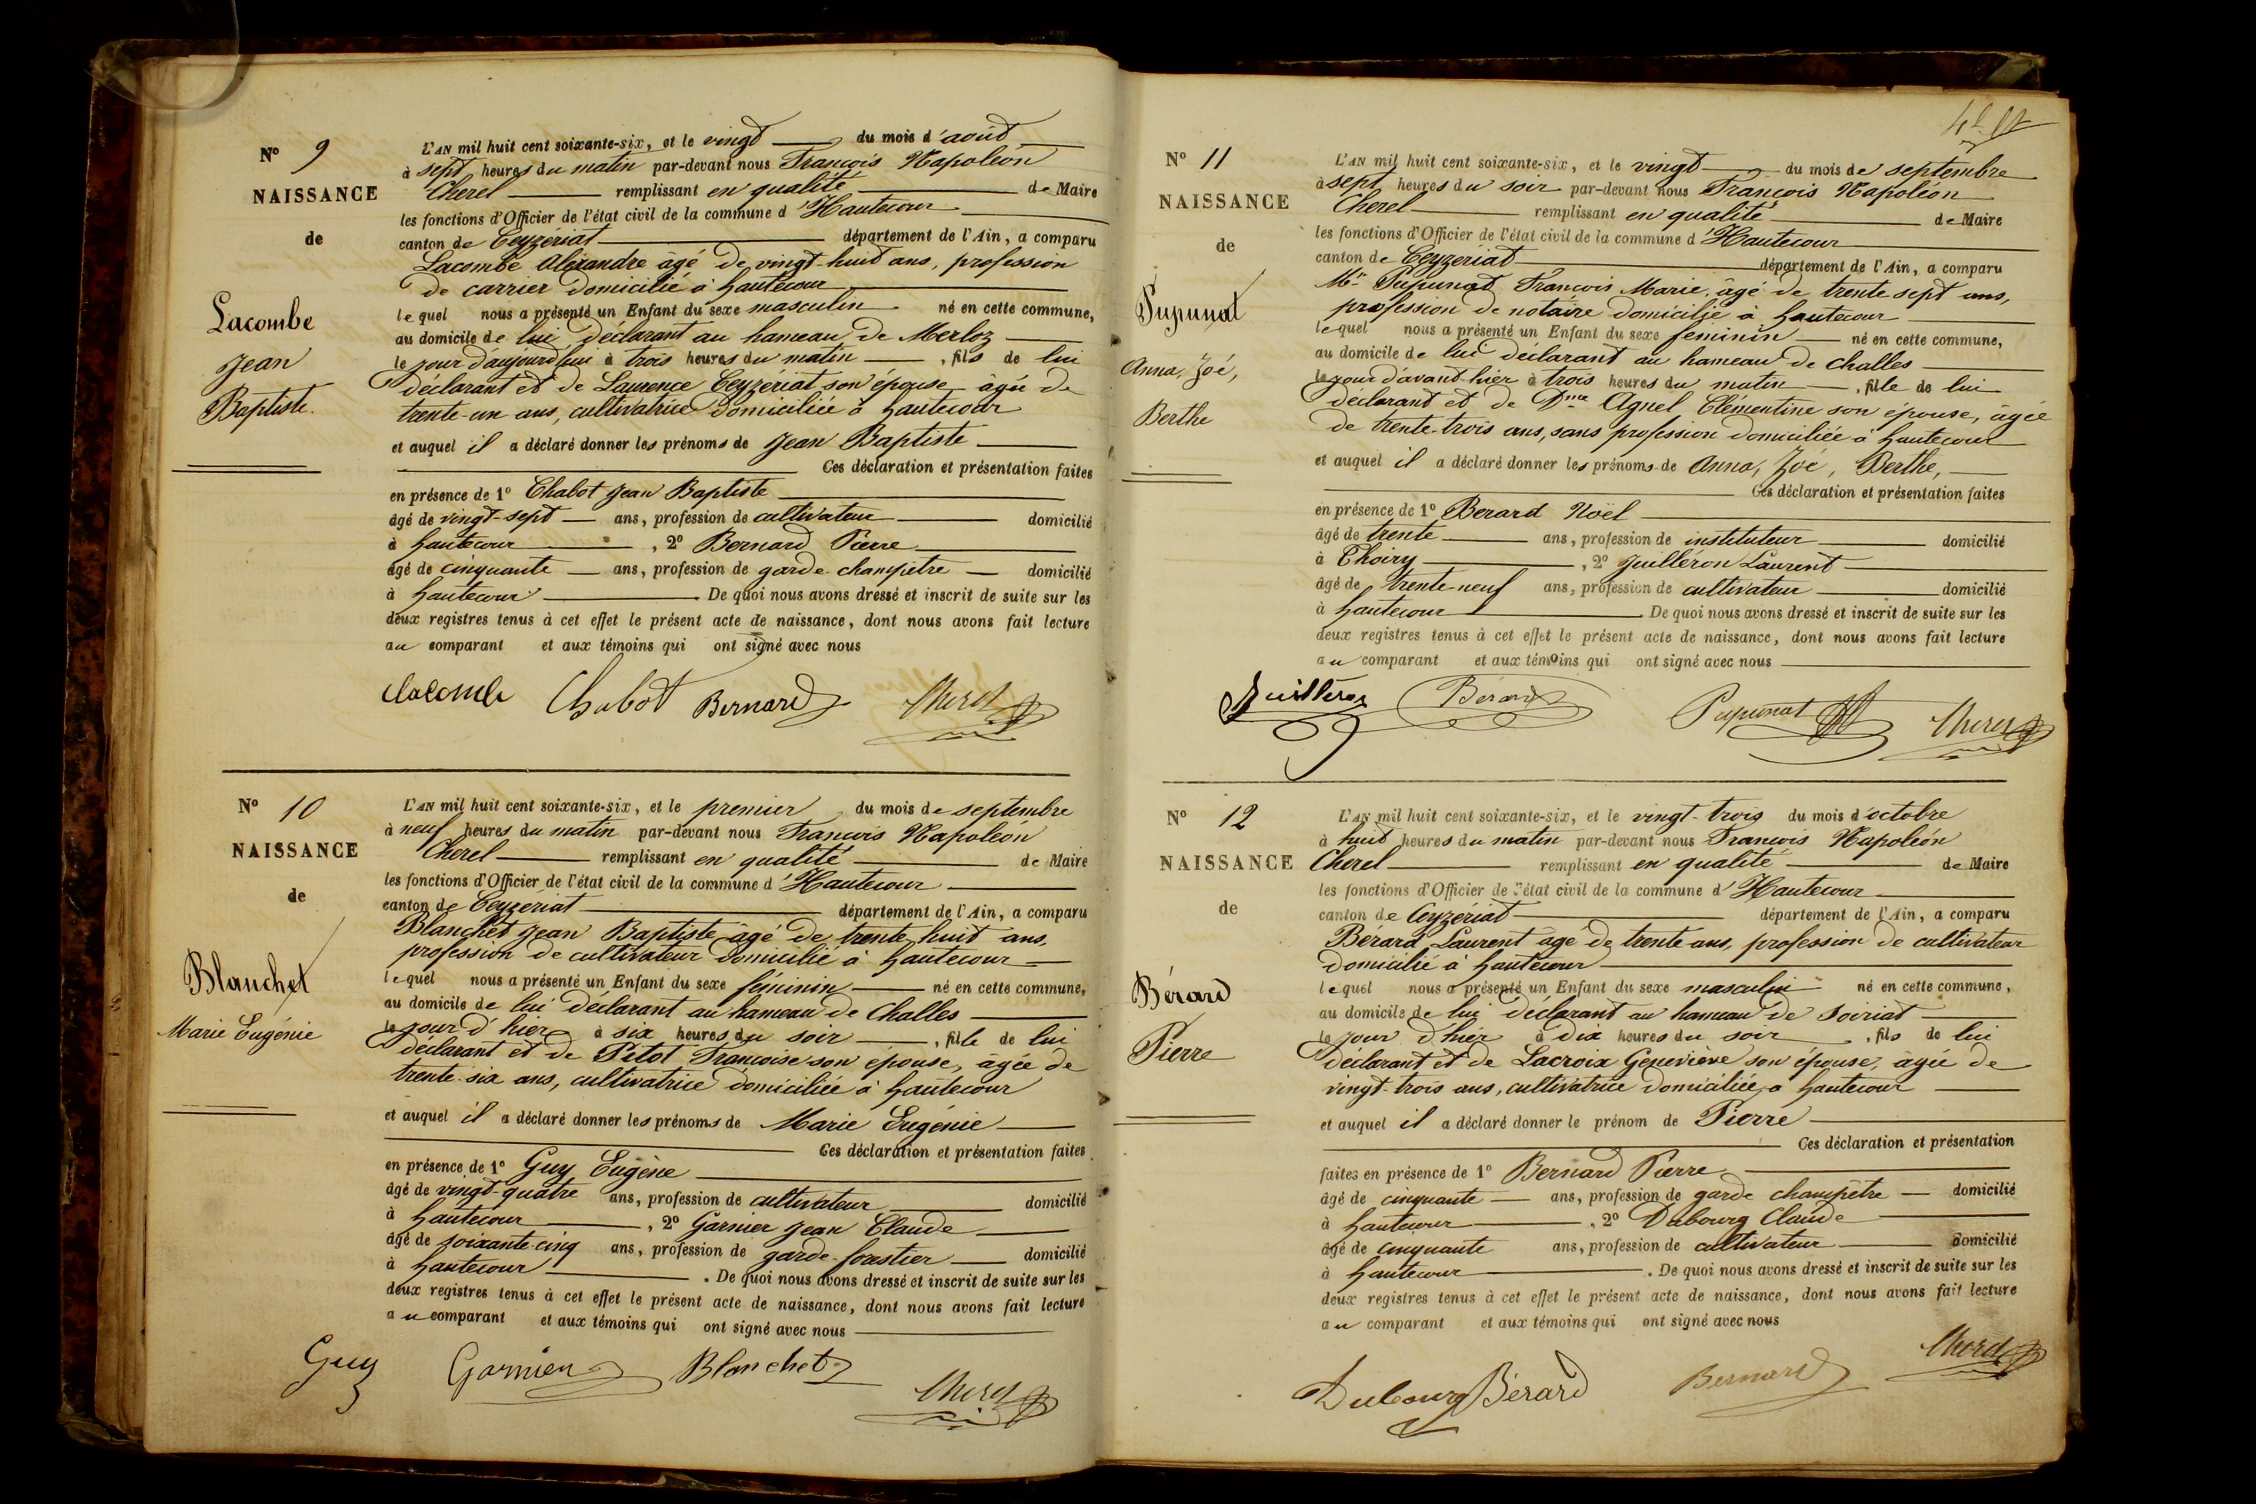 N° 9
NAISSANCE
de
Lacombe
Jean
Baptiste.
L'AN mil huit cent soixante-six, et le vingt du mois d'août
à sept heures du matin par-devant nous François Napoléon
Cherel remplissant en qualité de Maire
les fonctions d'Officier de l'état civil de la commune d'Hautecour
canton de Ceyzériat département de l'Ain, a comparu
Lacombe Alexandre âgé de vingt-huit ans, profession
de carrier domicilié à hautecour
lequel nous a présenté un Enfant du sexe masculin né en cette commune,
au domicile de lui déclarant au hameau de Merloz
le jour d'aujourd'hui à trois heures du matin, fils de lui
déclarant et de Laurence Ceyzériat son épouse, âgée de
trente-un ans, cultivatrice domiciliée à hautecour
et auquel il a déclaré donner les prénoms de Jean Baptiste
Ces déclaration et présentation faites
en présence de 1° Chabot Jean Baptiste
âgé de vingt-sept ans, profession de cultivateur domicilié
à hautecour, 2° Bernard Pierre
âgé de cinquante ans, profession de garde-champêtre domicilié
à hautecour. De quoi nous avons dressé et inscrit de suite sur les
deux registres tenus à cet effet le présent acte de naissance, dont nous avons fait lecture
au comparant et aux témoins qui ont signé avec nous
Lacombe Chabot Bernard Cherel
N° 10
NAISSANCE
de
Blanchet
Marie Eugénie
L'AN mil huit cent soixante-six, et le premier du mois de septembre
à neuf heures du matin par-devant nous François Napoléon
Cherel remplissant en qualité de Maire
les fonctions d'Officier de l'état civil de la commune d'Hautecour
canton de Ceyzériat département de l'Ain, a comparu
Blanchet Jean Baptiste âgé de trente huit ans,
profession de cultivateur domicilié à hautecour
lequel nous a présenté un Enfant du sexe féminin né en cette commune,
au domicile de lui déclarant au hameau de Challes
le jour d'hier à six heures du soir, fille de lui
déclarant et de Pitot Françoise son épouse, âgée de
trente-six ans, cultivatrice domiciliée à hautecour
et auquel il a déclaré donner les prénoms de Marie Eugénie
Ces déclaration et présentation faites
en présence de 1° Guy Eugène
âgé de vingt-quatre ans, profession de cultivateur domicilié
à hautecour, 2° Garnier Jean Claude
âgé de soixante-cinq ans, profession de garde-forestier domicilié
à hautecour. De quoi nous avons dressé et inscrit de suite sur les
deux registres tenus à cet effet le présent acte de naissance, dont nous avons fait lecture
au comparant et aux témoins qui ont signé avec nous
Guy Garnier Blanchet Cherel
N° 11
NAISSANCE
de
Pupunat
Anna, Zoé,
Berthe
L'AN mil huit cent soixante-six, et le vingt du mois de septembre
à sept heures du soir par-devant nous François Napoléon
Cherel remplissant en qualité de Maire
les fonctions d'Officier de l'état civil de la commune d'Hautecour
canton de Ceyzériat département de l'Ain, a comparu
Mr Pupunat François Marie, âgé de trente sept ans,
profession de notaire domicilié à hautecour
lequel nous a présenté un Enfant du sexe féminin né en cette commune,
au domicile de lui déclarant au hameau de challes
le jour d'avant-hier à trois heures du matin, fille de lui
déclarant et de Dme Agnel Clémentine son épouse, âgée
de trente-trois ans, sans profession domiciliée à hautecour
et auquel il a déclaré donner les prénoms de Anna, Zoé, Berthe,
Ces déclaration et présentation faites
en présence de 1° Berard Noël
âgé de trente ans, profession de instituteur domicilié
à Thoiry, 2° Guilléron Laurent
âgé de trente-neuf ans, profession de cultivateur domicilié
à hautecour. De quoi nous avons dressé et inscrit de suite sur les
deux registres tenus à cet effet le présent acte de naissance, dont nous avons fait lecture
au comparant et aux témoins qui ont signé avec nous
Guilléron Bérard Pupunat Cherel
N° 12
NAISSANCE
de
Bérard
Pierre
L'AN mil huit cent soixante-six, et le vingt-trois du mois d'octobre
à huit heures du matin par-devant nous François Napoléon
Cherel remplissant en qualité de Maire
les fonctions d'Officier de l'état civil de la commune d'Hautecour
canton de Ceyzériat département de l'Ain, a comparu
Bérard Laurent âgé de trente ans, profession de cultivateur
domicilié à hautecour
lequel nous a présenté un Enfant du sexe masculin né en cette commune,
au domicile de lui déclarant au hameau de Soiriat
le jour d'hier à dix heures du soir, fils de lui
déclarant et de Lacroix Geneviève son épouse, âgée de
vingt-trois ans, cultivatrice domiciliée à hautecour
et auquel il a déclaré donner le prénom de Pierre
Ces déclaration et présentation
faites en présence de 1° Bernard Pierre
âgé de cinquante ans, profession de garde champêtre domicilié
à hautecour, 2° Dubourg Claude
âgé de cinquante ans, profession de cultivateur domicilié
à hautecour. De quoi nous avons dressé et inscrit de suite sur les
deux registres tenus à cet effet le présent acte de naissance, dont nous avons fait lecture
au comparant et aux témoins qui ont signé avec nous
Dubourg Bérard Bernard Cherel